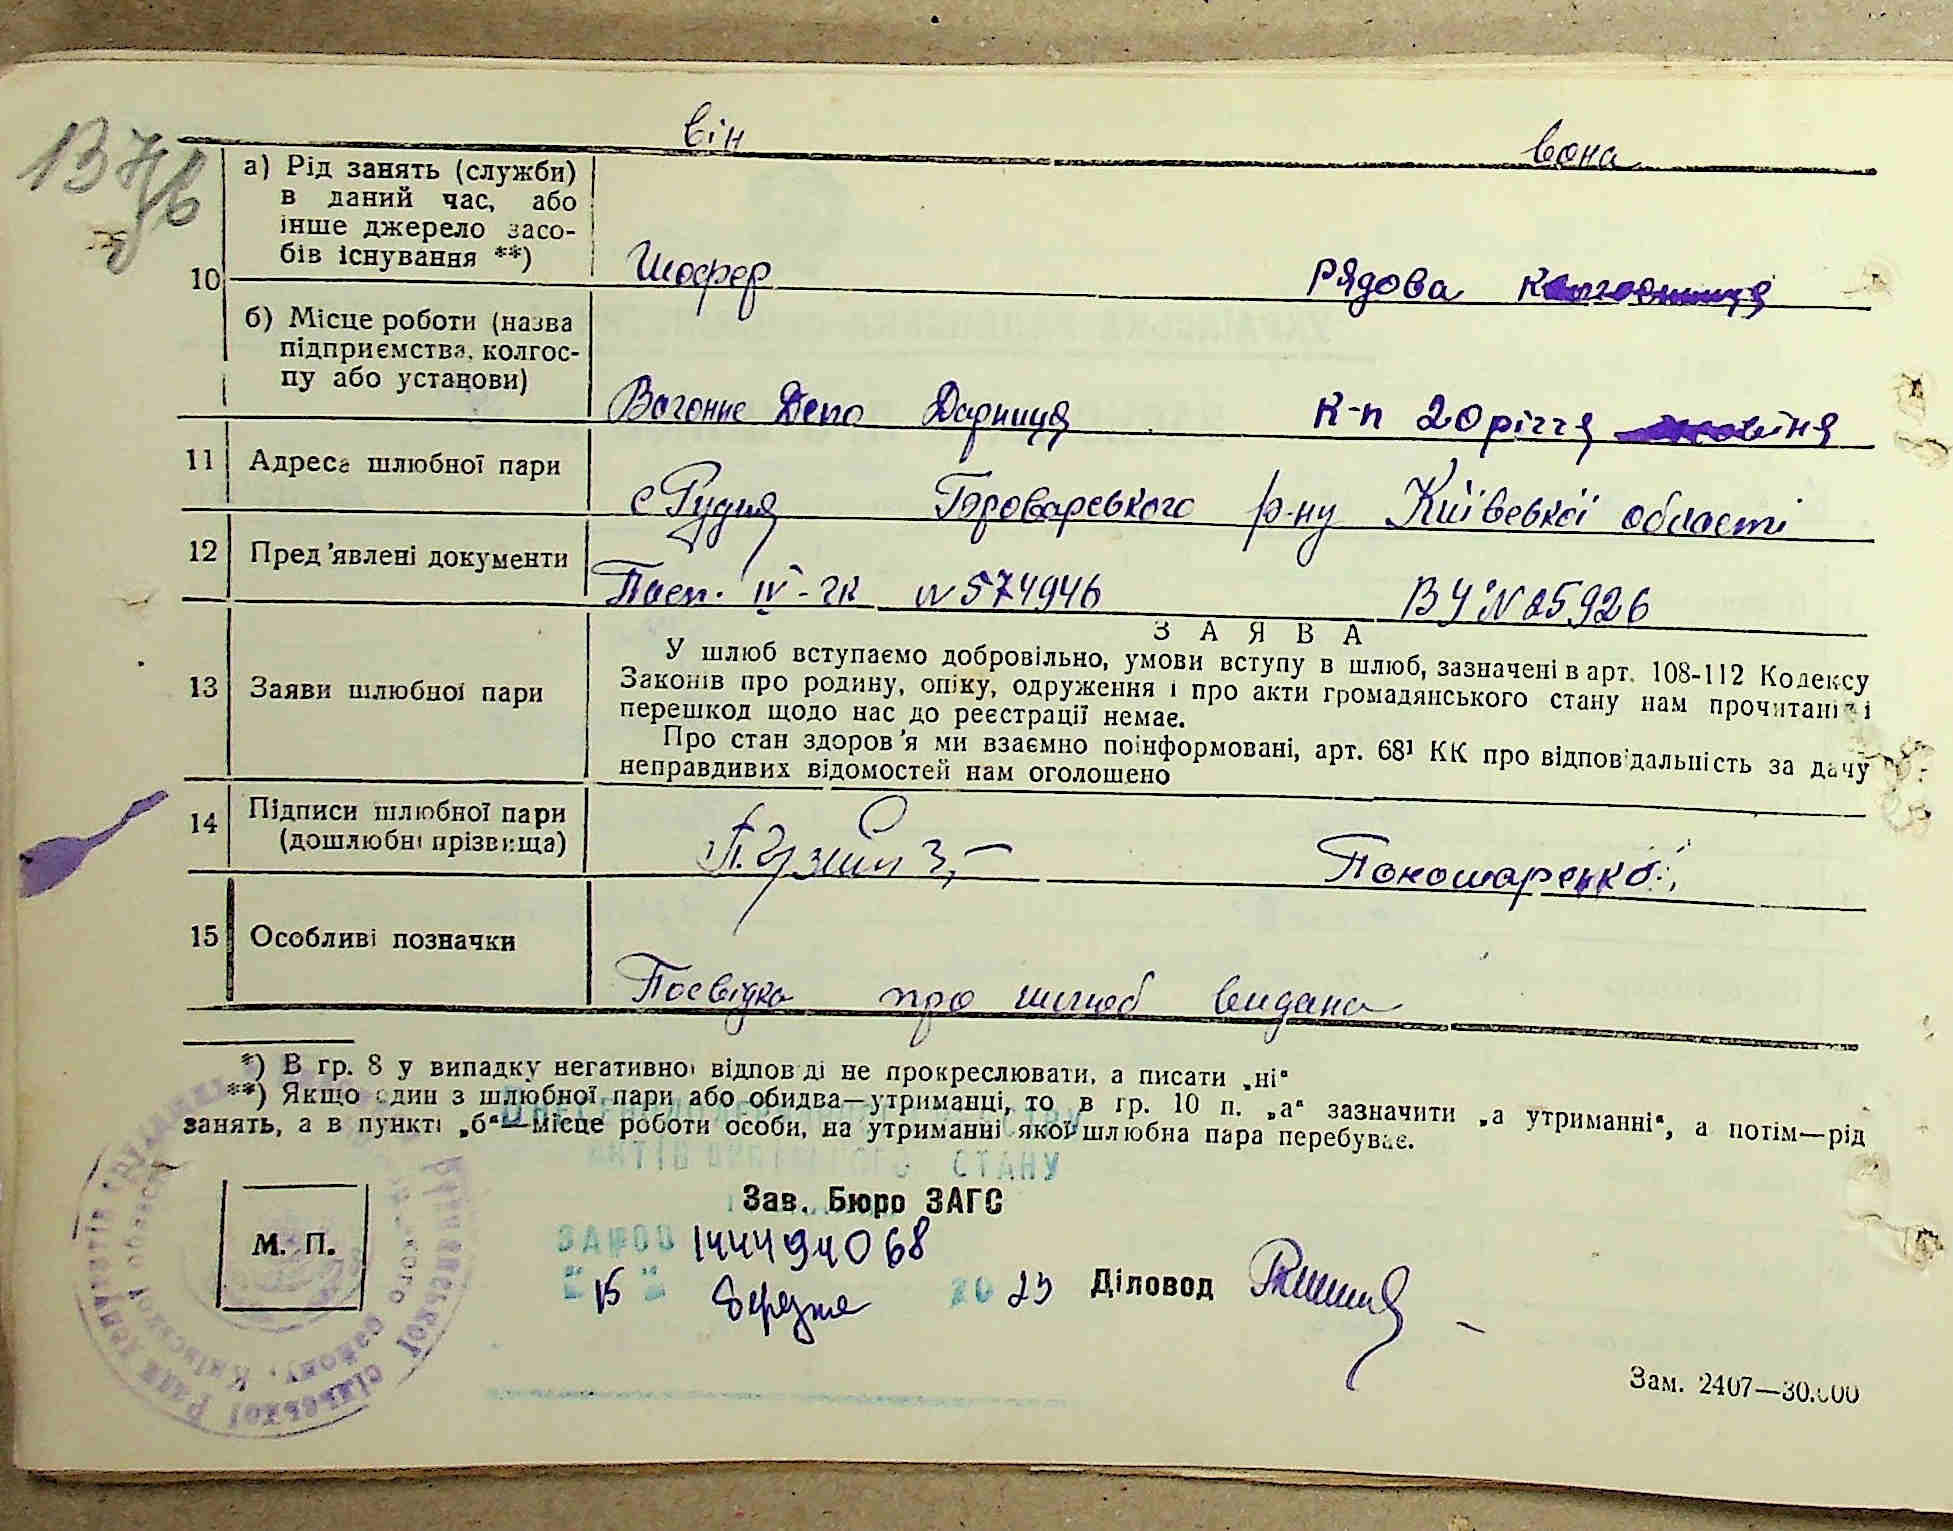 137/б
він вона
а) Рід занять (служби)
в даний час, або
інше джерело засо-
бів існування **)
Шофер Рядова колгоспниця
10
б) Місце роботи (назва
підприємства, колгос-
пу або установи)
Вагонне Депо Дарниця к-п 20 річчя
11 Адреса шлюбної пари
с Рудня Броварського р-ну Київської області
12 Пред'явлені документи
Пасп. IV-ЧК № 574946 ВУ № 25926
З А Я В А
13 Заяви шлюбної пари
У шлюб вступаємо добровільно, умови вступу в шлюб, зазначені в арт. 108-112 Кодексу
Законів про родину, опіку, одруження і про акти громадянського стану нам прочитані і
перешкод щодо нас до реєстрації немає.
Про стан здоров'я ми взаємно поінформовані, арт. 68¹ КК про відповідальність за дачу
неправдивих відомостей нам оголошено
14 Підписи шлюбної пари
(дошлюбні прізвища)
Пономаренко
15 Особливі позначки
Посвідка про шлюб видана
*) В гр. 8 у випадку негативної відповіді не прокреслювати, а писати „ні“
**) Якщо один з шлюбної пари або обидва—утриманці, то в гр. 10 п. „а“ зазначити „а утриманні“, а потім—рід
занять, а в пункті „б“—місце роботи особи, на утриманні якої шлюбна пара перебуває.
СТАНУ
Зав. Бюро ЗАГС
М. П.
144494068
15 березня 2023
Діловод
Зам. 2407—30.000